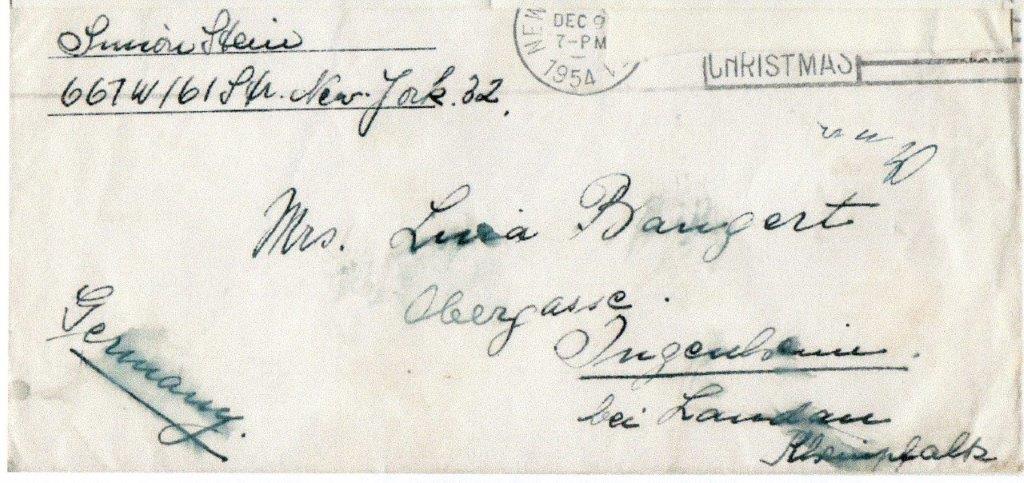 Simon Stein
667 W 161 Str. New-York. 32.
NEW
DEC 9
7-PM
1954
CHRISTMAS
Mrs. Luia Bangert
Obergasse.
Ingenheim.
bei Landau
Rheinpfalz
Germany.